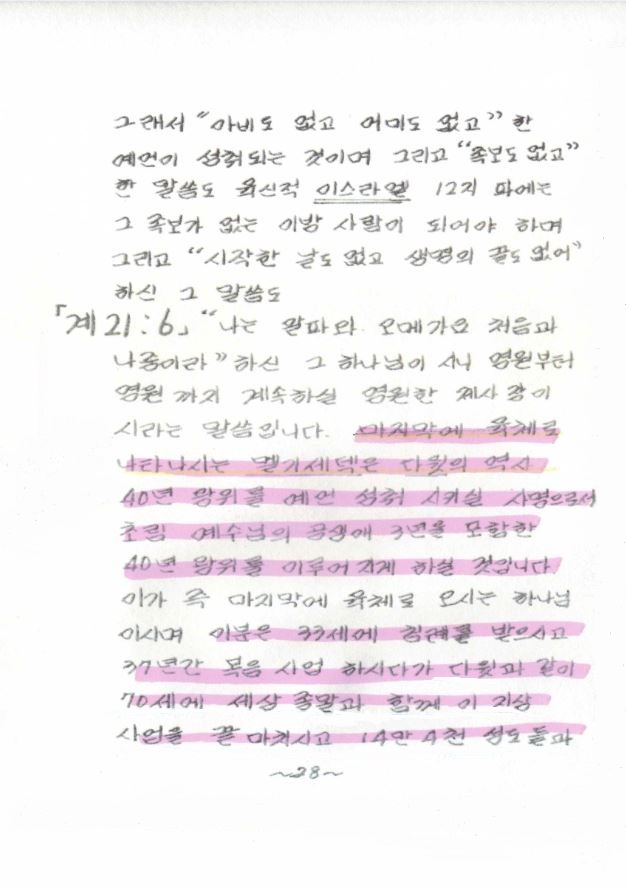 그래서 "아비도 없고 어미도 없고" 한
예언이 성취되는 것이며 그리고 "족보도 없고"
한 말씀도 육신적 이스라엘 12지 파에는
그 족보가 없는 이방 사람이 되어야 하며
그리고 "시작한 날도 없고 생명의 끝도 없어"
하신 그 말씀도
「계 21:6」 "나는 알파와 오메가요 처음과
나중이라" 하신 그 하나님이시니 영원부터
영원 까지 계속하실 영원한 제사장이
시라는 말씀입니다. 마지막에 육체로
나타나시는 멜기세덱은 다윗의 역시
40년 왕위를 예언 성취 시키실 사명으로서
초림 예수님의 공생애 3년을 포함한
40년 왕위를 이루어 지게 하실 것입니다.
이가 즉 마지막에 육체로 오시는 하나님
이시며 이분은 33세에 침례를 받으시고
37년간 복음 사업 하시다가 다윗과 같이
70세에 세상 종말과 함께 이 지상
사업을 끝 마치시고 14만 4천 성도들과
~28~